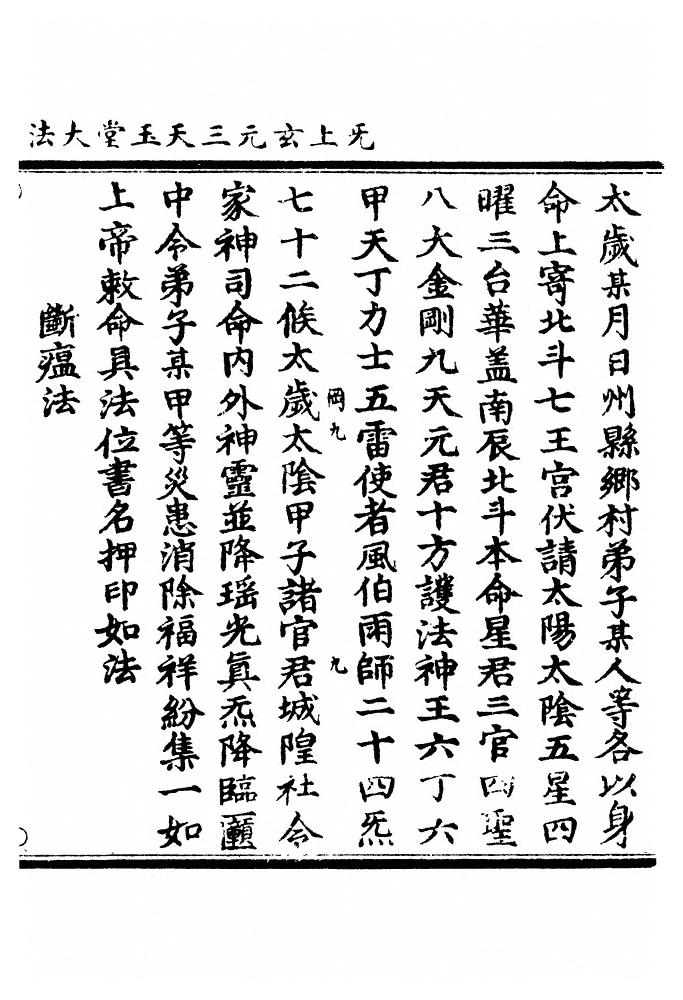 无上玄元三天玉堂大法
太歲某月日州縣鄉村弟子某人等各以身
命上寄北斗七王宮伏請太陽太陰五星四
曜三台華盖南辰北斗本命星君三官四聖
八大金剛九天元君十方護法神王六丁六
甲天丁力士五雷使者風伯雨師二十四炁
岡九
九
七十二候太歲太陰甲子諸官君城隍社令
家神司命内外神靈並降瑶光真炁降臨
中令弟子某甲等災患消除福祥紛集一如
上帝敕命具法位書名押印如法
斷瘟法